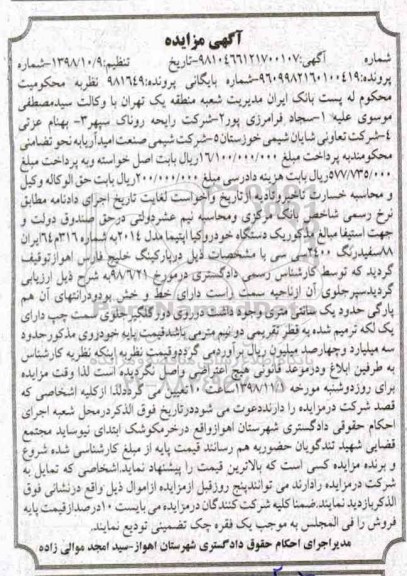 آگهی مزایده
شماره آگهی:۹۸۱۰۴۶۶۱۲۱۷۰۰۱۰۷-تاریخ تنظیم:۱۳۹۸/۱۰/۹-شماره
پرونده:۹۶۰۹۹۸۲۱۶۰۱۰۰۴۱۹-شماره بایگانی پرونده:۹۸۱۶۴۹ نظربه محکومیت
محکوم له پست بانک ایران مدیریت شعبه منطقه یک تهران با وکالت سیدمصطفی
موسوی علیه ۱-سجاد فرامرزی پور۲-شرکت رایحه روناک سپهر۳- بهنام عزتی
۴-شرکت تعاونی شایان شیمی خوزستان۵-شرکت شیمی صنعت امیدآریابه نحو تضامنی
محکومندبه پرداخت مبلغ ۱۶/۱۰۰/۰۰۰/۰۰۰ریال بابت اصل خواسته وبه پرداخت مبلغ
۵۷۷/۷۳۵/۰۰۰ریال بابت هزینه دادرسی مبلغ ۲۰۰/۰۰۰/۰۰۰ریال بابت حق الوکاله وکیل
و محاسبه خسارت تاخیروتادیه ازتاریخ وآخواست لغایت تاریخ اجرای دادنامه مطابق
نرخ رسمی شاخص بانک مرکزی ومحاسبه نیم عشردولتی درحق صندوق دولت و
جهت استیفا مبالغ مذکوریک دستگاه خودروکیا اپتیما مدل ۲۰۱۴به شماره ۳۱۶م۶۴ایران
۸۸سفیدرنگ ۲۴۰۰سی سی با مشخصات ذیل درپارکینگ خلیج فارس اهوازتوقیف
گردید که توسط کارشناس رسمی دادگستری درمورخ ۹۸/۶/۲۱به شرح ذیل ارزیابی
گردیدسپرجلوی آن ازناحیه سمت راست دارای خط و خش بودودرانتهای آن هم
پارگی حدود یک سانتی متری وجود داشت درروی دورگلگیرجلوی سمت چپ دارای
یک لکه ترمیم شده به قطر تقریبی دونیم مترمی باشدقیمت پایه خودروی مذکورحدود
سه میلیارد وچهارصد میلیون ریال برآوردمی گرددوقیمت نظربه اینکه نظریه کارشناس
به طرفین ابلاغ ودرموعد قانونی هیچ اعتراضی واصل نگردیده است لذا وقت مزایده
برای روزدوشنبه مورخه ۱۳۹۸/۱۱/۱ساعت ۱۰تعیین می گرددلذا ازکلیه اشخاصی که
قصد شرکت درمزایده را دارنددعوت می شوددرتاریخ فوق الذکردرمحل شعبه اجرای
احکام حقوقی دادگستری شهرستان اهوازواقع درخرمکوشک ابتدای نیوساید مجتمع
قضایی شهید تندگویان حضوربه هم رسانند قیمت پایه از مبلغ کارشناسی شده شروع
و برنده مزایده کسی است که بالاترین قیمت را پیشنهاد نماید.اشخاصی که تمایل به
شرکت درمزایده رادارند می توانندپنج روزقبل ازمزایده ازاموال ذیل واقع درنشانی فوق
الذکربازدید نمایند.ضمنا کلیه شرکت کنندگان درمزایده می بایست ۱۰درصدازقیمت پایه
فروش را فی المجلس به موجب یک فقره چک تضمینی تودیع نمایند.
مدیراجرای احکام حقوق دادگستری شهرستان اهواز-سید امجد موالی زاده